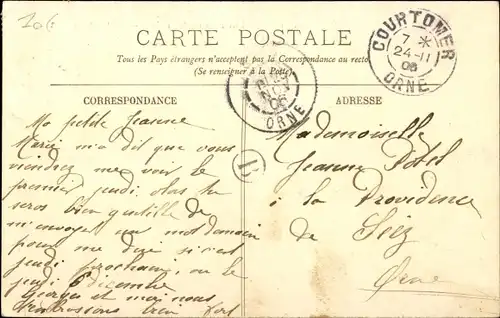 206
CARTE POSTALE
Tous les Pays étrangers n'acceptent pas la Correspondance au recto
(Se renseigner à la Poste)
COURTOMER
7 *
24 - 11
06
ORNE
ORNE
CORRESPONDANCE
ADRESSE
Ma petite Jeanne
Marie m'a dit que vous
viendrez me voir le
premier jeudi, alors tu
seras bien gentille de
m'envoyer un mot demain
pour me dire si c'est
jeudi prochain, ou le
jeudi 6 Décembre
Georges et moi nous
t'embrassons bien fort
B
Mademoiselle
Jeanne
à la Providence
de Séez
Orne